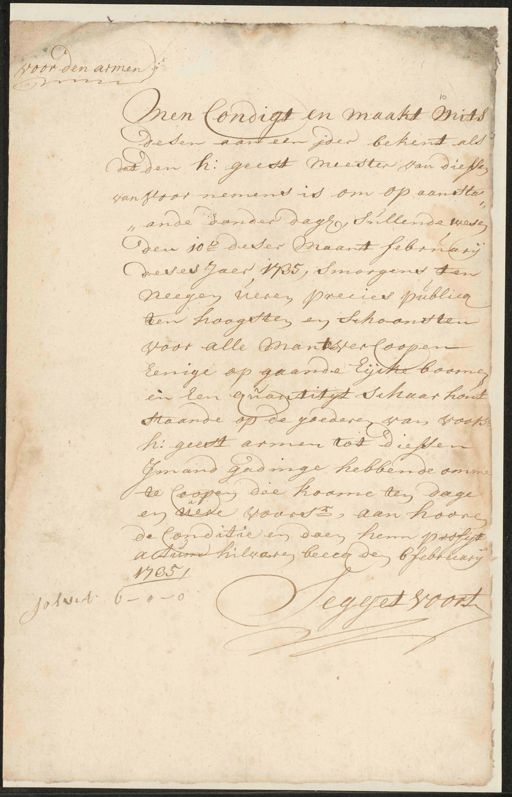 voor den armen
Men Condigt en maakt mits
desen aan een jder bekent als
dat den h: geest Meester van diessen
van voor nemens is om op aansta„
„ande donder dagh, sullende wesen
den 10e deser Maant februarij
deses Jaer 1735, smorgens ten
neegen uren precies publicq
ten hoogsten en schoonsten
voor alle Man te ver Coopen
Eenige op gaande Eijcke boomen
en Een quantitijt schaar hout
staande op de goederen van voors:
h: geest armen tot diessen
Jmand gadinge hebbende omme
te Coopen die koome ten dage
en ure voorsz, aan hooren
de Conditie en doen henn profijt
actum hilvaren beecq den 6 februarij
1735,
Segget voort
solvit 6-0-0